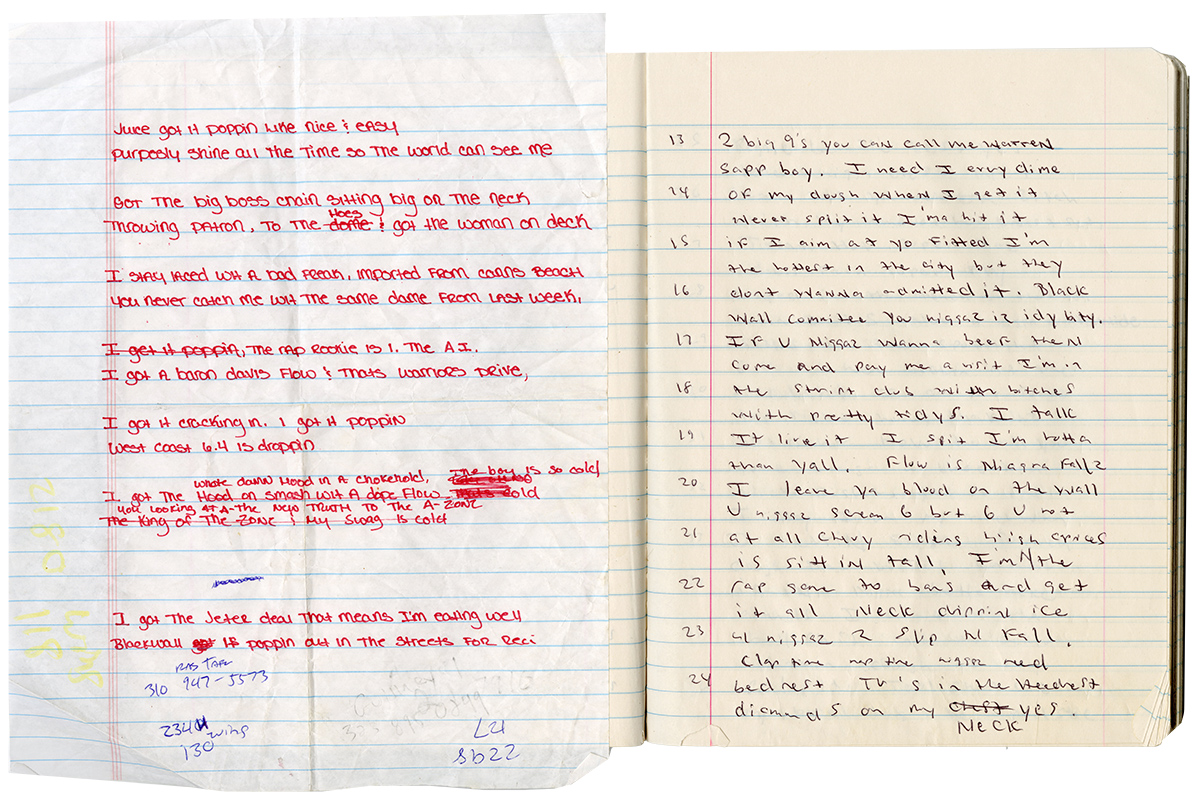 Juice got it poppin like nice & easy
purposly shine all the time so the world can see me
Got the big boss chain sitting big on the neck
Hoes
Throwing patron, to the dome & got the woman on deck
I stay laced wit a bad freak, imported from canns beach
you never catch me wit the same dame from last week,
I get it poppin, the rap rookie is 1. The A.I.
I got a baron davis flow & thats warriors drive,
I got it cracking in. I got it poppin
west coast 6.4 is droppin
whole damn hood in a chokehold, The boy is so cold
I got the Hood on smash wit a dope flow thats cold
you looking at a the new truth to the A-Zone
The king of the zone & my swag is cold
I got the Jeter deal that means I'm eating well
Blackwall got it poppin out in the streets for reci
ras tafe
310 947-5573
2344 wing
130
L4
sb22
2180
118
13 2 big 9's you can call me warren
sapp boy. I need I evry dime
24 of my dough when I get it
never split it I'ma hit it
15 if I aim at yo fitted I'm
the hottest in the city but they
16 dont wanna admitted it. Black
wall commitee you niggaz iz idy bity.
17 If U Niggaz wanna beef then
come and pay me a visit I'm in
18 the stript club with bitches
with pretty tidys. I talk
19 It live it I spit I'm hotta
than yall. Flow is Niagra Fallz
20 I leave ya blood on the wall
U niggaz scream 6 but 6 U not
21 at all chevy riders high
is sittin tall, I'm the
22 rap game to bans and get
it all Neck drippin ice
23 4 niggaz 2 slip N fall.
Clap time nap time niggaz need
24 bedrest TV's in the Headrest
diamonds on my chest yes.
Neck